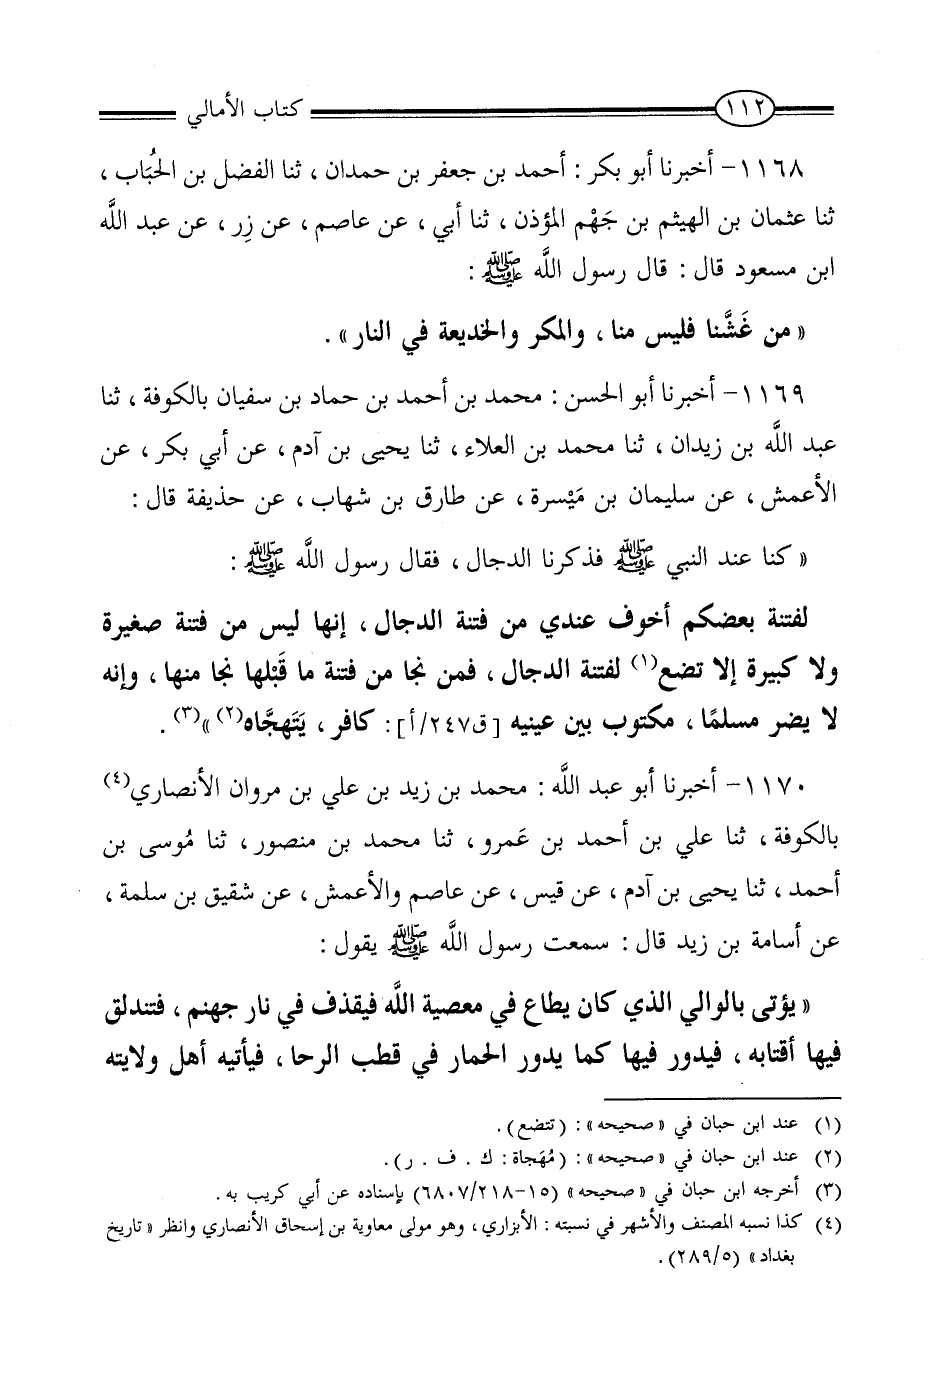 ١١٢ كتاب الأمالي
١١٦٨- أخبرنا أبو بكر : أحمد بن جعفر بن حمدان ، ثنا الفضل بن الحُبَاب ،
ثنا عثمان بن الهيثم بن جَهْم المؤذن ، ثنا أبي ، عن عاصم ، عن زِر ، عن عبد اللَّه
ابن مسعود قال : قال رسول اللَّه ﷺ :
« من غَشَّنا فليس منا ، والمكر والخديعة في النار» .
١١٦٩- أخبرنا أبو الحسن : محمد بن أحمد بن حماد بن سفيان بالكوفة ، ثنا
عبد اللَّه بن زيدان ، ثنا محمد بن العلاء ، ثنا يحيى بن آدم ، عن أبي بكر ، عن
الأعمش ، عن سليمان بن مَيْسرة ، عن طارق بن شهاب ، عن حذيفة قال :
« كنا عند النبي ﷺ فذكرنا الدجال ، فقال رسول اللَّه ﷺ :
لفتنة بعضكم أخوف عندي من فتنة الدجال ، إنها ليس من فتنة صغيرة
ولا كبيرة إلا تضع(١) لفتنة الدجال ، فمن نجا من فتنة ما قَبْلها نجا منها ، وإنه
لا يضر مسلمًا ، مكتوب بين عينيه [ق٢٤٧/أ] : كافر ، يَتَهجَّاه(٢) »(٣) .
١١٧٠- أخبرنا أبو عبد اللَّه : محمد بن زيد بن علي بن مروان الأنصاري(٤)
بالكوفة ، ثنا علي بن أحمد بن عَمرو ، ثنا محمد بن منصور ، ثنا مُوسى بن
أحمد ، ثنا يحيى بن آدم ، عن قيس ، عن عاصم والأعمش ، عن شقيق بن سلمة ،
عن أسامة بن زيد قال : سمعت رسول اللَّه ﷺ يقول :
« يؤتى بالوالي الذي كان يطاع في معصية اللَّه فيقذف في نار جهنم ، فتندلق
فيها أقتابه ، فيدور فيها كما يدور الحمار في قطب الرحا ، فيأتيه أهل ولايته
(١) عند ابن حبان في « صحيحه» : (تتضع) .
(٢) عند ابن حبان في « صحيحه» : (مُهَجاة : ك . ف . ر) .
(٣) أخرجه ابن حبان في « صحيحه» (١٥-٦٨٠٧/٢١٨) بإسناده عن أبي كريب به .
(٤) كذا نسبه المصنف والأشهر في نسبته : الأبزاري ، وهو مولى معاوية بن إسحاق الأنصاري وانظر « تاريخ
بغداد» (٢٨٩/٥) .